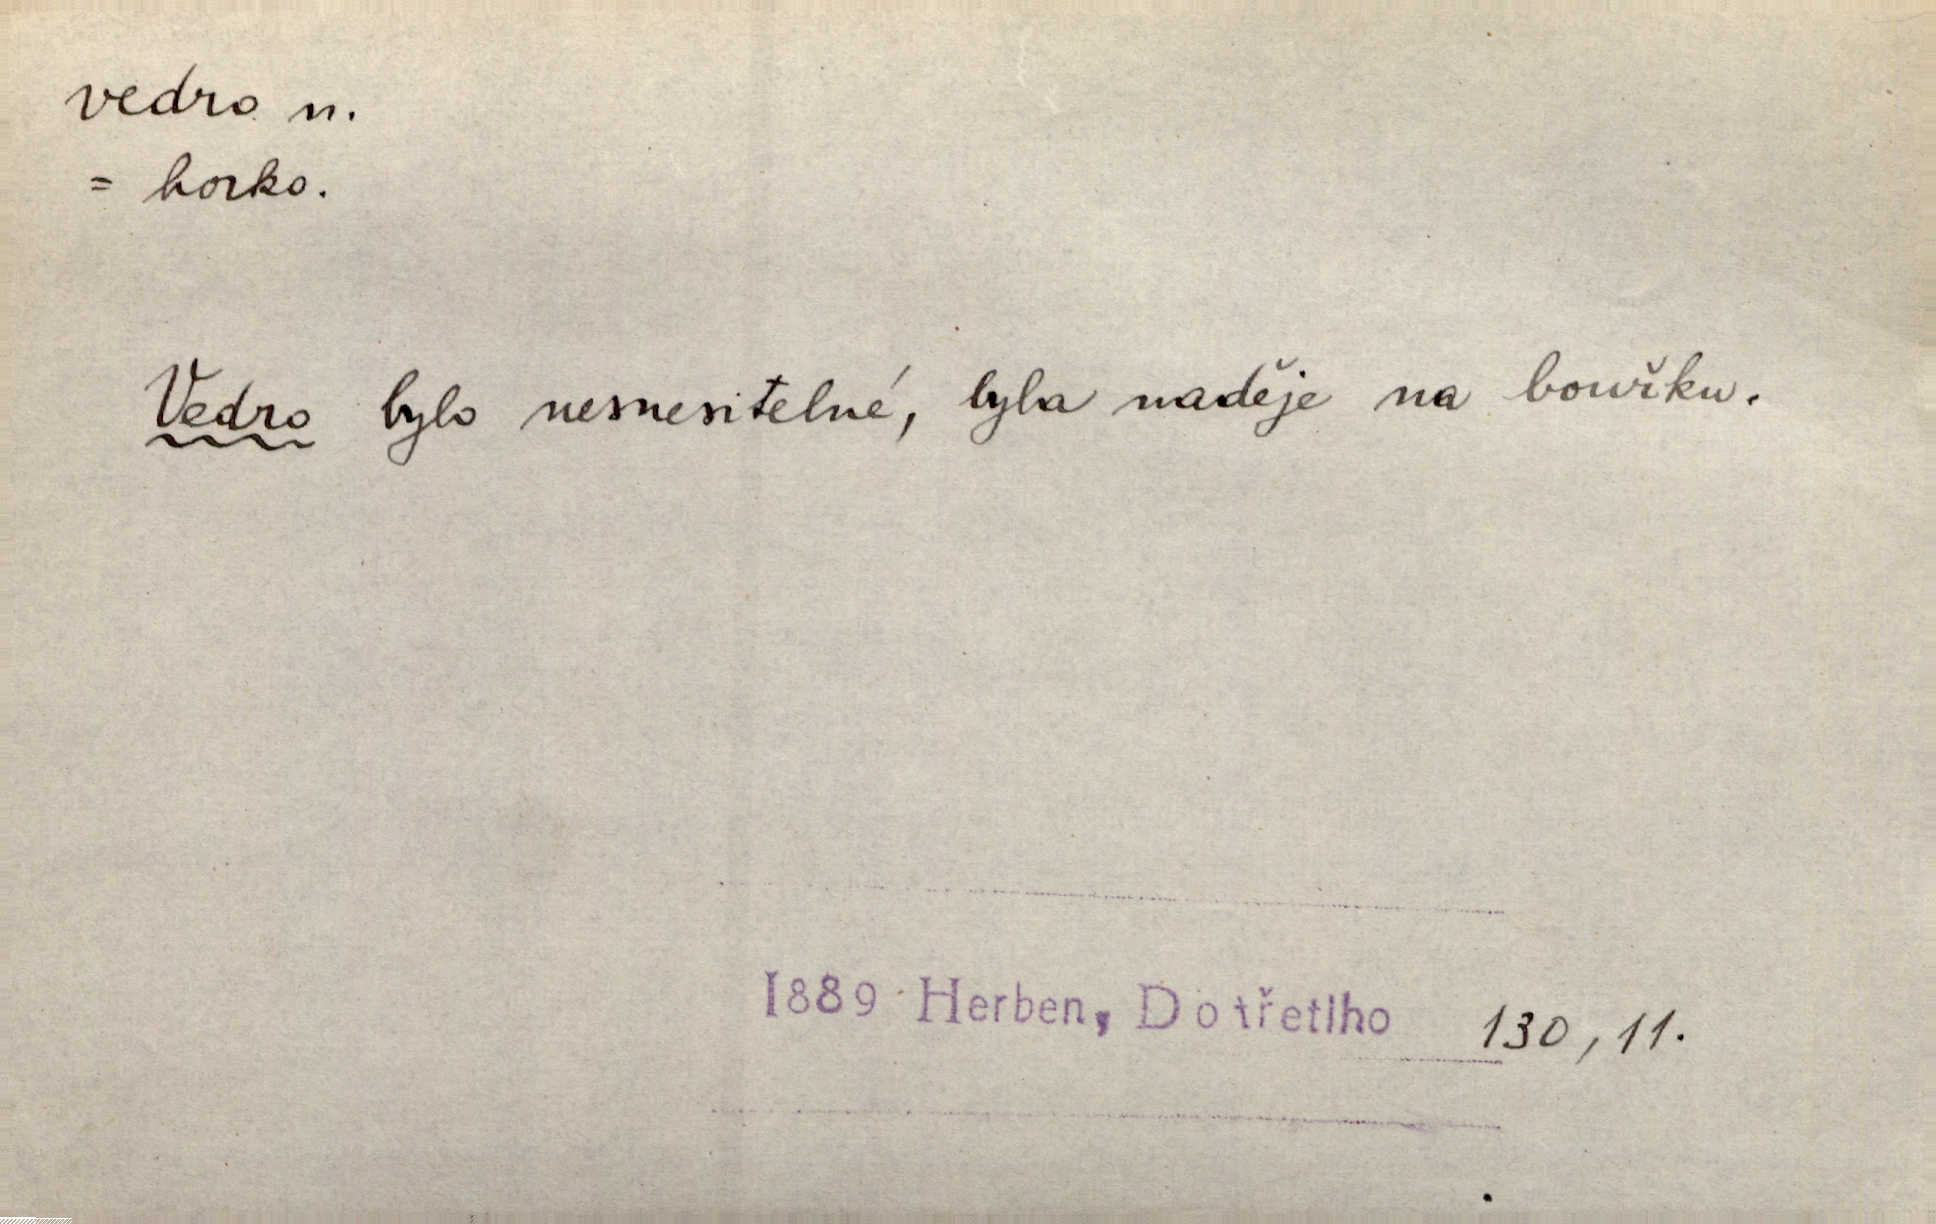 vedro n.
= horko.
Vedro bylo nesnesitelné, byla naděje na bouřku.
1889 Herben, Do třetího 130, 11.